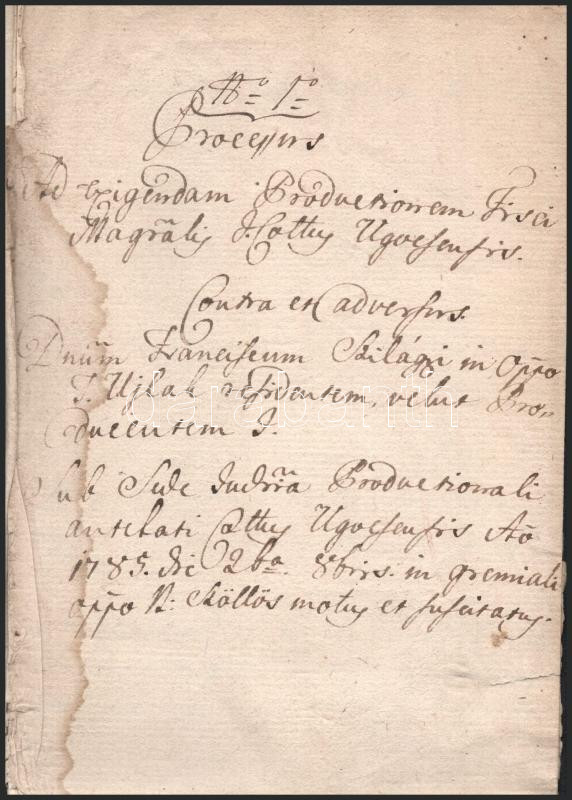 Nº 1º
Processus
Ad exigendam Productionem Fisci
Magrãlis I. Cottus Ugocsensis.
Contra et adversus.
Dnũm Franciscum Szilágÿi in Oppo
T. Ujlak residentem, velut Pro„
ducentem I.
Sub Sede Judrĩa Productionali
antelati Cottus Ugocsensis Aõ
1785. die 2da. 8bris. in gremiali
oppo N: Szöllös motus et suscitatus.
darabanth